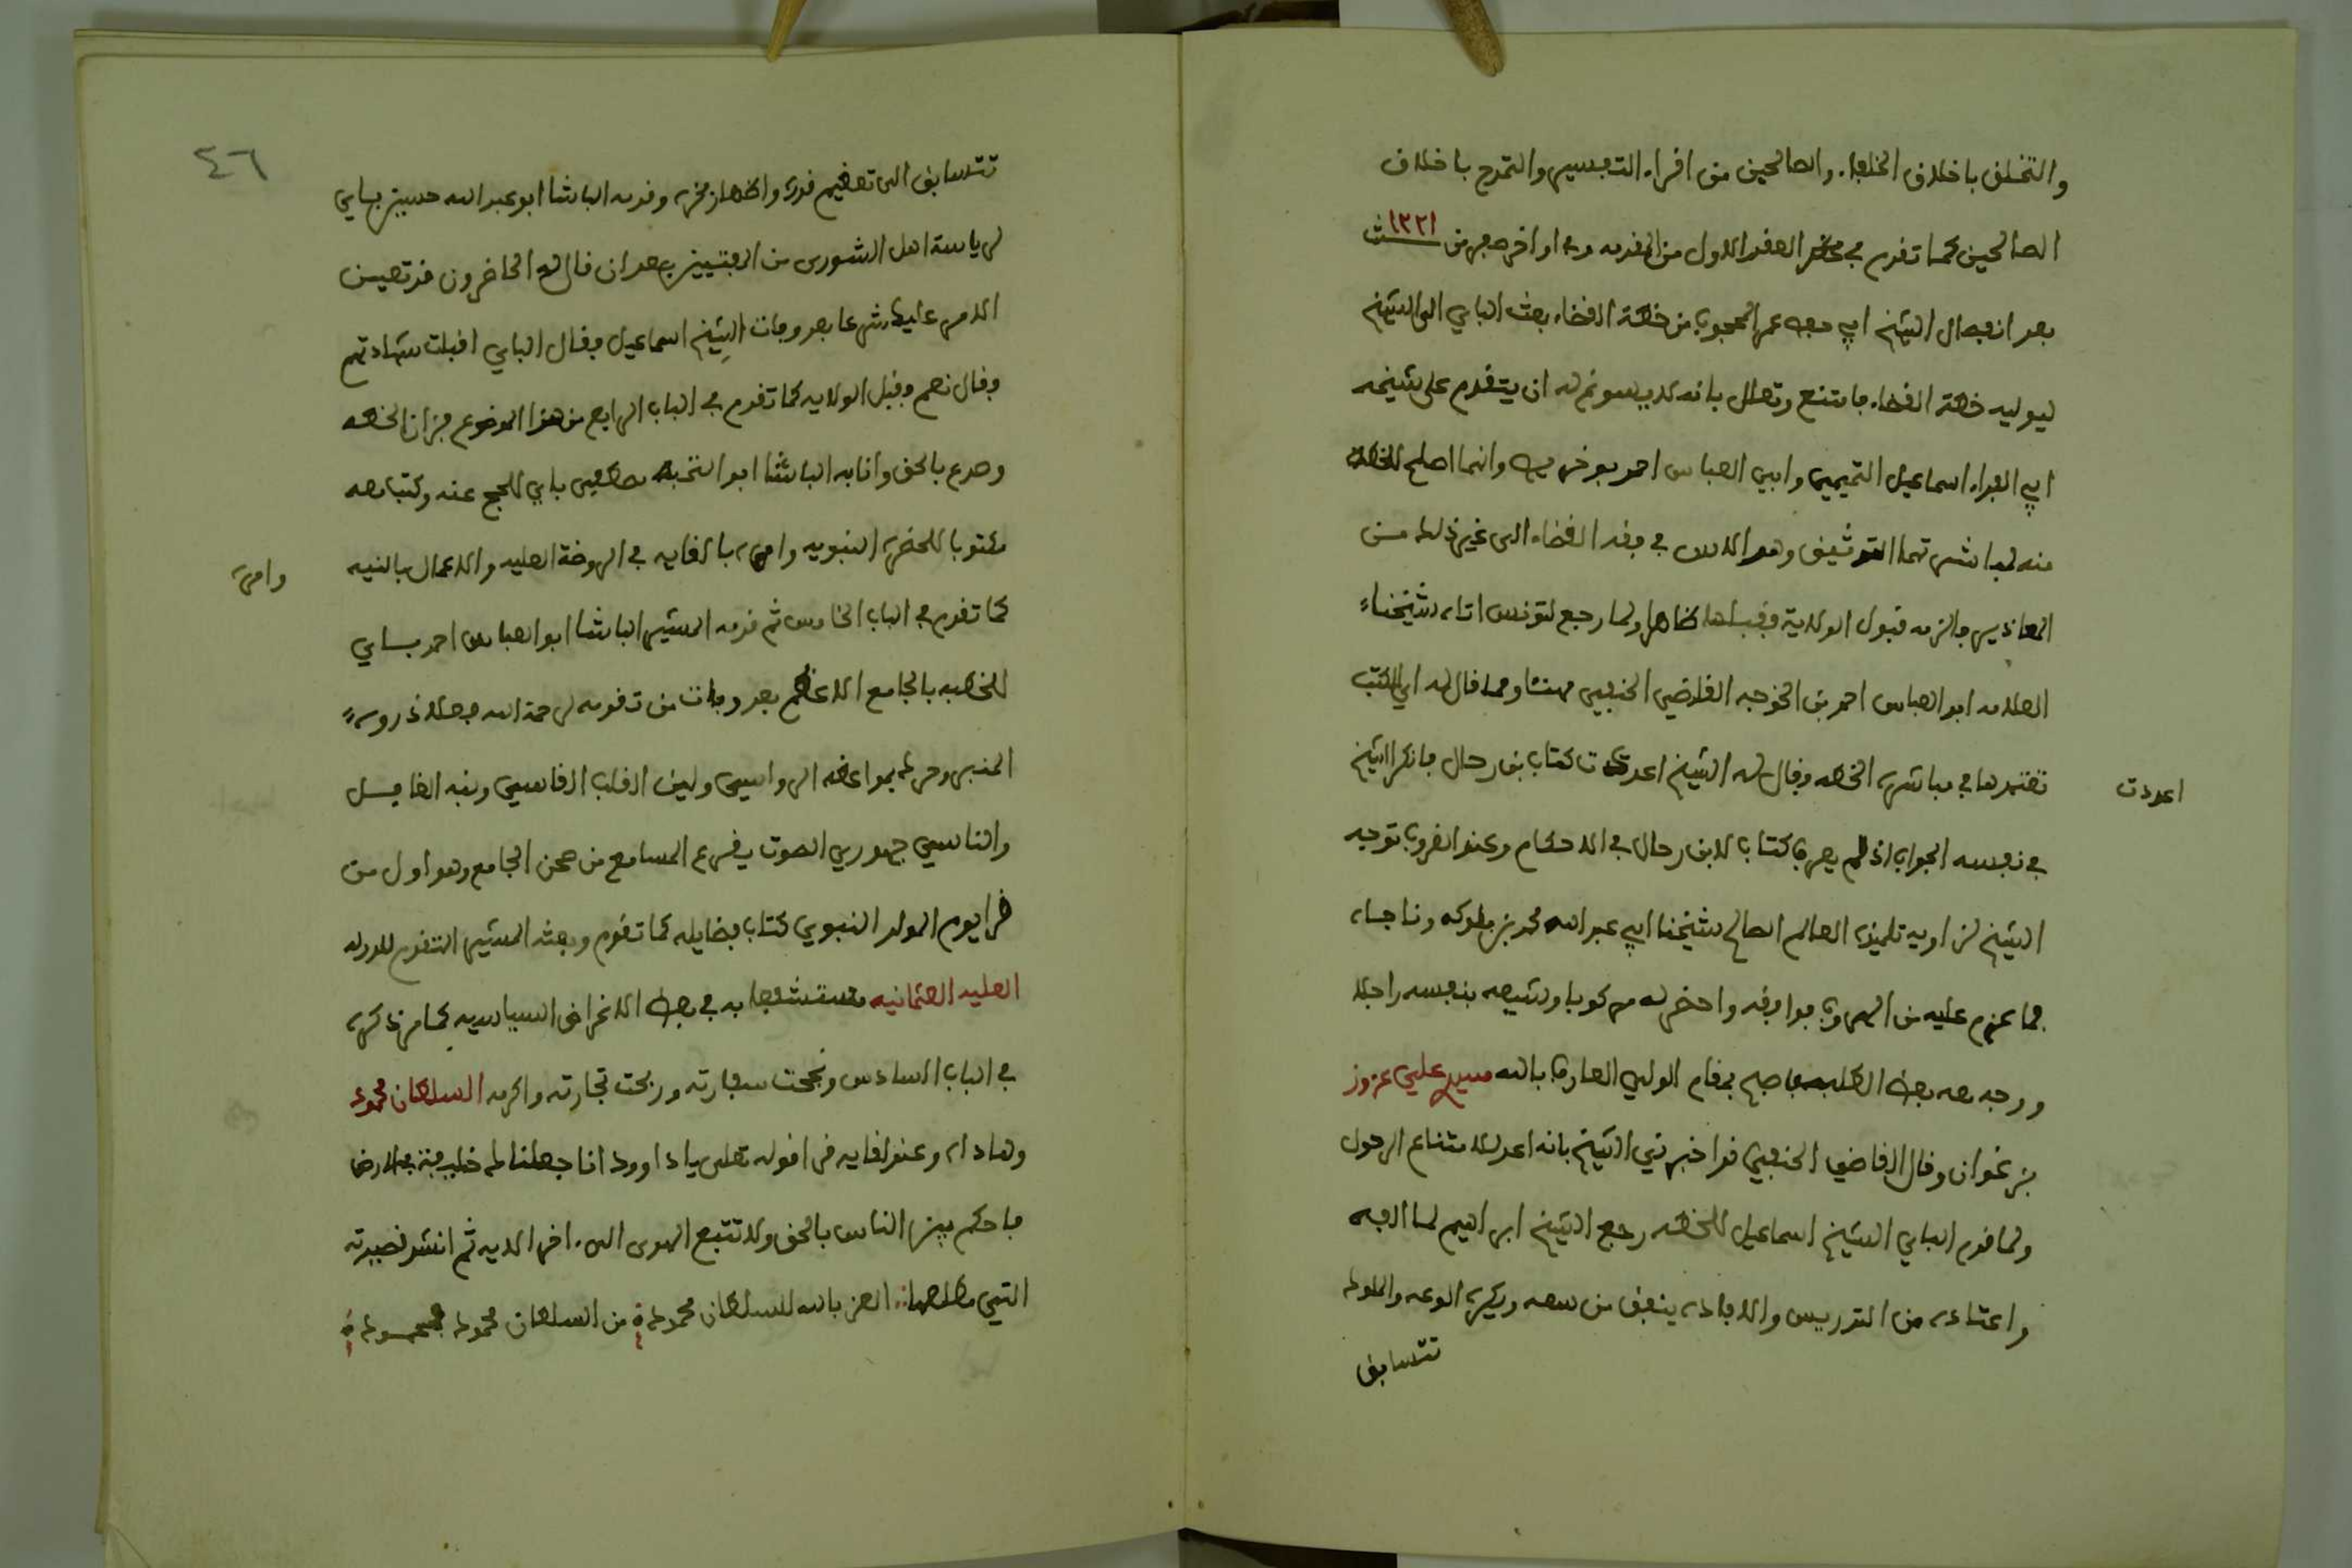 والتخلق باخلاق الخلفاء والصالحين من اقراء التفسير والتمدح باخلاق
الصالحين كما تقدم في العقد الاول من المقدمه وفي اواخر صفر من سنة ١٢٢١
بعد انفصال الشيخ ابي حفص عمر المحجوب من خطة القضاء بعث الباي الى الشيخ
ليوليه خطة القضاء فامتنع وتعلل بانه لا يسوغ له ان يتقدم على شيخه
ابي الفداء اسماعيل التميمي وابي العباس احمد بوخريص وانهما اصلح للخطة
منه لمباشرتهما التوثيق وهو الاس في فقه القضاء الى غير ذلك من
المعاذير فالزمه قبول الولاية فقبلها ظاهرا ولما رجع لتونس اتاه شيخنا
العلامه ابو العباس احمد بن الخوجه القاضي الحنفي مهنئا ومما قال له اي الكتب
تعتمدها في مباشرة الخطه فقال له الشيخ اعددت كتاب بن رحال فانكر الشيخ
اعددت
في نفسه الجواب اذ لم يعرف كتابا لابن رحال في الاحكام وعند الغروب توجه
الشيخ لزاويه تلميذه العالم الصالح شيخنا ابي عبد الله محمد بن ملوكه وناجاه
بما عزم عليه من الهروب فوافقه واحضر له مركوبا وشيعه بنفسه راجلا
ووجه معه بعض الطلبه فاصبح بمقام الولي العارف بالله سيدي علي عزوز
بزغوان وقال القاضي الحنفي قد اخبرني الشيخ بانه اعد للامتناع الرحول
ولما قدم الباي الشيخ اسماعيل للخطه رجع الشيخ ابراهيم لما الفه
واعتاده من التدريس والافاده ينفق من سعه ويكره الدعه والملوك
تتسابق
٤٦
تتسابق الى تعظيم قدره واظهار فخره وقدمه الباشا ابو عبد الله حسين باي
لرياسة اهل الشورى من المفتيين بعد ان قال له الحاضرون قد تعين
الامر عليك شرعا بعد وفات الشيخ اسماعيل فقال الباي اقبلت شهادتهم
فقال نعم وقبل الولايه كما تقدم في الباب الرابع من هذا الموضوع فزان الخطه
وصدع بالحق وانابه الباشا ابو النخبه مصطفى باي للحج عنه وكتب معه
مكتوبا للحضرة النبويه وامره بالقايه في الروضة العليه والاعمال بالنيه
وامره
كما تقدم في الباب الخامس ثم قدمه المشير الباشا ابو العباس احمد باي
للخطبه بالجامع الاعظم بعد وفات من تقدمه رحمة الله فعلا ذروة
المنبر وحرك بمواعظه الرواسي ولين القلب القاسي ونبه الغافل
والناسي جهوري الصوت يقرع المسامع من صحن الجامع وهو اول من
قرا يوم المولد النبوي كتاب فضايله كما تقدم وبعثه المشير المتقدم للدوله
العليه العثمانيه مستشفعا به في بعض الاغراض السياسيه كما مر ذكره
في الباب السادس ونجحت سفارته وربحت تجارته واكرمه السلطان محمود
وهاداه وعند لقايه قرا قوله تعلى يا داوود انا جعلناك خليفة في الارض
فاحكم بين الناس بالحق ولا تتبع الهوى الى اخر الايه ثم انشد قصيدته
التي مطلعها العز بالله للسلطان محمود من السلطان محمود فمحمود